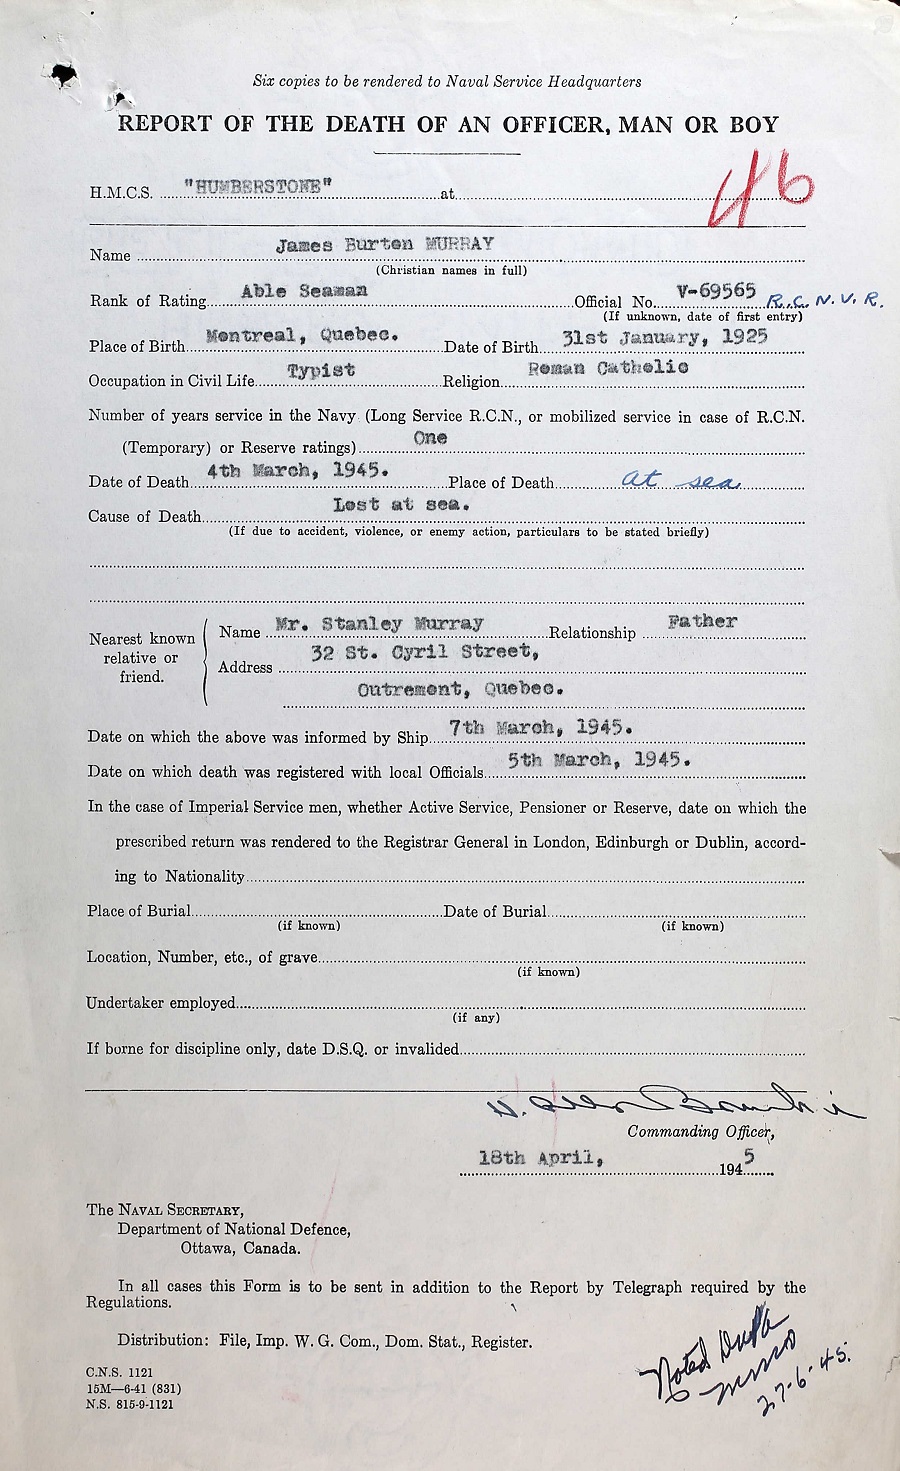 Six copies to be rendered to Naval Service Headquarters
REPORT OF THE DEATH OF AN OFFICER, MAN OR BOY
46
H.M.C.S. "HUMBERSTONE" at
Name James Burton MURRAY
(Christian names in full)
Rank of Rating Able Seaman Official No. V-69565 R.C.N.V.R.
(If unknown, date of first entry)
Place of Birth Montreal, Quebec. Date of Birth 31st January, 1925
Occupation in Civil Life Typist Religion Roman Catholic
Number of years service in the Navy (Long Service R.C.N., or mobilized service in case of R.C.N.
(Temporary) or Reserve ratings) One
Date of Death 4th March, 1945. Place of Death at sea
Cause of Death Lost at sea.
(If due to accident, violence, or enemy action, particulars to be stated briefly)
Nearest known relative or friend.
Name Mr. Stanley Murray Relationship Father
Address 32 St. Cyril Street,
Outremont, Quebec.
Date on which the above was informed by Ship 7th March, 1945.
Date on which death was registered with local Officials 5th March, 1945.
In the case of Imperial Service men, whether Active Service, Pensioner or Reserve, date on which the
prescribed return was rendered to the Registrar General in London, Edinburgh or Dublin, accord-
ing to Nationality
Place of Burial Date of Burial
(if known) (if known)
Location, Number, etc., of grave
(if known)
Undertaker employed
(if any)
If borne for discipline only, date D.S.Q. or invalided
Commanding Officer,
18th April, 1945
The NAVAL SECRETARY,
Department of National Defence,
Ottawa, Canada.
In all cases this Form is to be sent in addition to the Report by Telegraph required by the
Regulations.
Distribution: File, Imp. W. G. Com., Dom. Stat., Register.
Noted
27-6-45.
C.N.S. 1121
15M—6-41 (831)
N.S. 815-9-1121